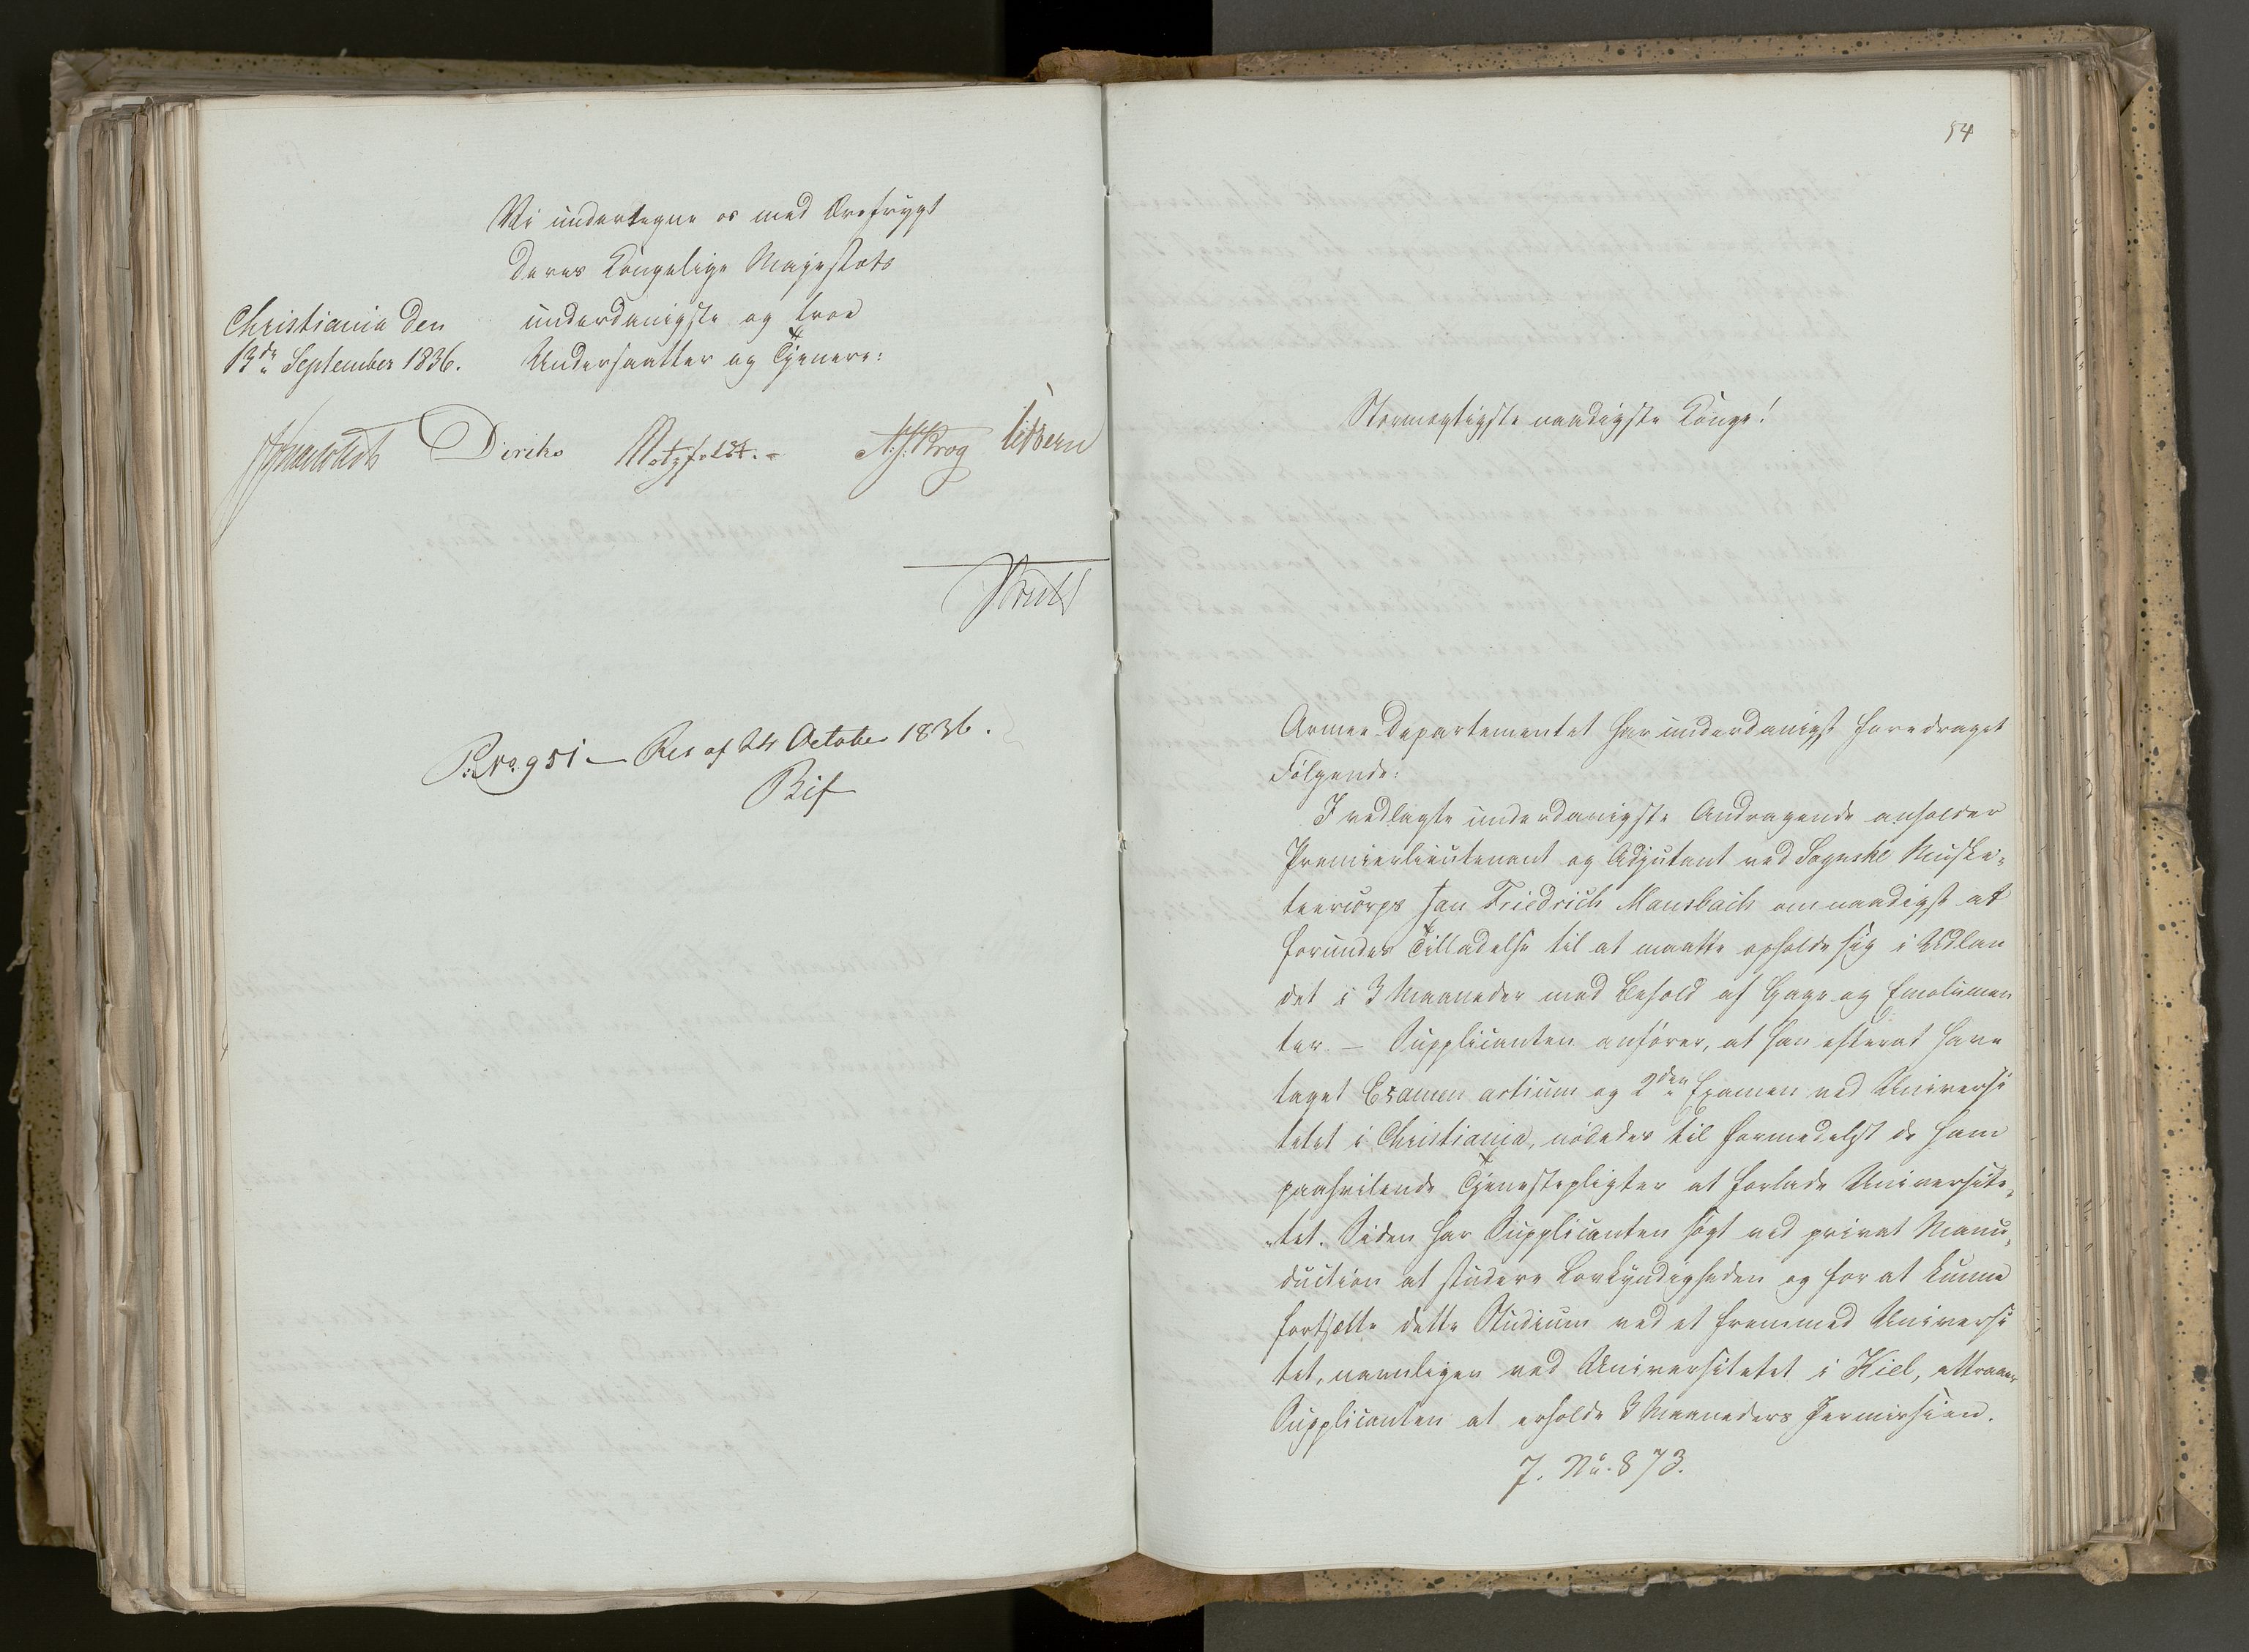 Vi undertegne os med Ærefrygt
Deres Kongelige Majestæts
underdanigste og troe
Undersaatter og Tjenere:
Christiania den
13de September 1836.
Diriks Motzfeldt. A. J. Krog
P: No. 951 — Res af 24 October 1836.
54
Stormægtigste naadigste Konge!
Armee-Departementet har underdanigst foredraget
Følgende:
I vedlagte underdanigste Andragende anholder
Premierlieutenant og Adjutant ved Sognske Muske-
teercorps Jan Friedrich Mansbach om naadigst at
forundes Tilladelse til at maatte opholde sig i Udlan
det i 3 Maaneder med Behold af Gage og Emolumen
ter. — Supplicanten anfører, at han efterat have
taget Examen artium og 2den Examen ved Universi
tetet i Christiania, nødedes til formedelst de ham
paahvilende Tjenestepligter at forlade Universite-
tet. Siden har Supplicanten søgt ved privat Manu-
duction at studere Lovkyndigheden og for at kunne
fortsætte dette Studium ved et fremmed Universi
tet, navnligen ved Universitetet i Kiel, attraaer
Supplicanten at erholde 3 Maaneders Permission.
J. No. 873.